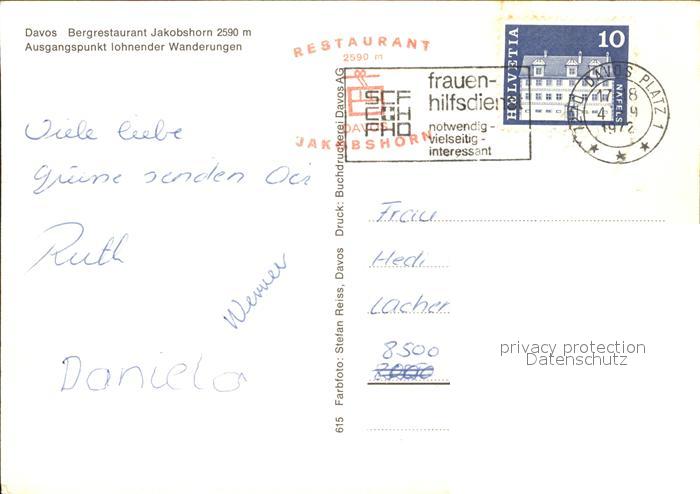 Davos Bergrestaurant Jakobshorn 2590 m
Ausgangspunkt lohnender Wanderungen
Viele liebe
Grüsse senden Dir
Ruth
Werner
Daniela
615 Farbfoto: Stefan Reiss, Davos Druck: Buchdruckerei Davos AG
RESTAURANT
2590 m
DAVOS
JAKOBSHORN
SCF
FHD
frauen-
hilfsdienst
notwendig -
vielseitig -
interessant
HELVETIA
10
NÄFELS
7270 DAVOS PLATZ 1
1972
Frau
Hedi
Lacher
8500
privacy protection
Datenschutz